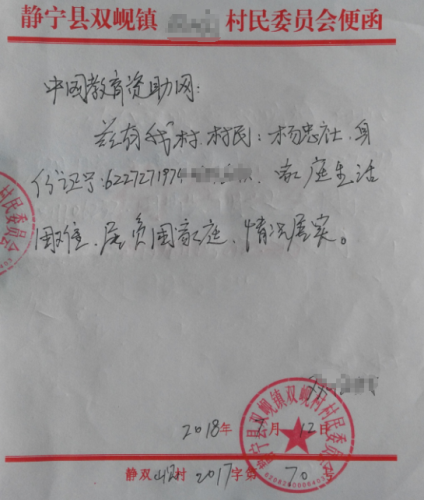 静宁县双岘镇 村民委员会便函
中国教育资助网:
兹有我村村民:杨忠社,身
份证号:6227271974 ,家庭生活
困难,属贫困家庭,情况属实。
2018年 月12日
静宁县双岘镇双岘村村民委员会
静双 村2017字第70
村民委员会